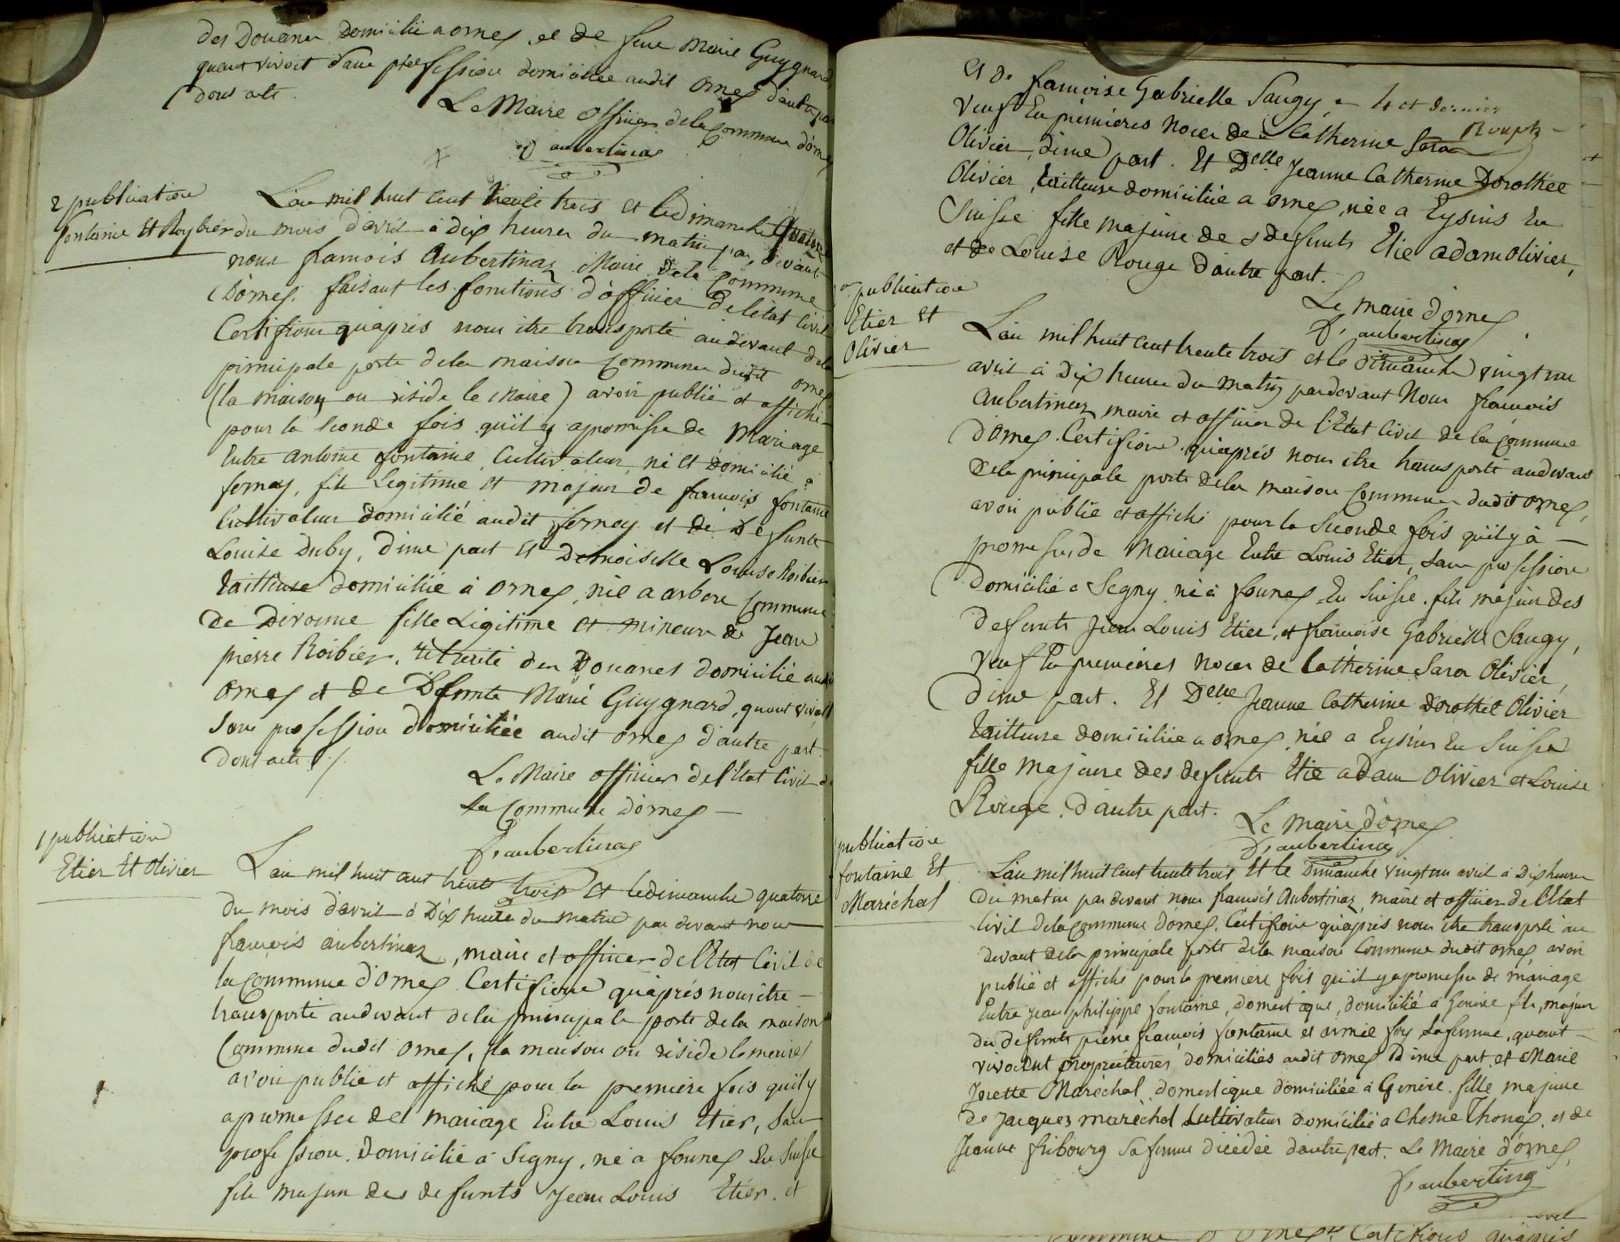 des Douanes domicilié a ornex, et de feue Marie Guygnard
quant vivoit sans profession domiciliée audit ornex d'autre part
Dont acte.
Le Maire officier de la Commune d'ornex
aubertinaz
2 publication
fontaine Et Roybier
L'an mil huit cent trente trois et le dimanche quatorze
du mois d'avril à dix heures du matin par devant
nous francois Aubertinaz Maire de la Commune
D'ornex faisant les fonctions d'officier de l'état Civil
Certifions qu'après nous être transporté au devant de la
principale porte de la maison Commune dudit ornex
(la maison ou réside le Maire) avoir publié et affiché
pour la seconde fois qu'il y a promesse de Mariage
Entre antoine fontaine, Cultivateur, né et domicilié à
fernay, fils Légitime et majeur de francois fontaine
Cultivateur domicilié audit fernay et de Défunte
Louise Duby, d'une part Et Demoiselle Louise Roibier
tailleuse domiciliée à ornex, née a arbere Commune
de Divonne fille Légitime et mineure de Jean
pierre Roibier, retraité des Douanes domicilié audit
ornex et de Défunte Marie Guygnard, quant vivoit
sans profession domiciliée audit ornex d'autre part
Dont acte ./.
Le Maire officier de l'état Civil de
la Commune d'ornex
f. aubertinaz
1 publication
Etier Et Olivier
L'an mil huit cent trente trois Et le dimanche quatorze
du mois d'avril à Dix heures du matin par devant nous
francois aubertinaz, maire et officier de l'Etat Civil de
la Commune d'ornex Certifions qu'après nous être
transporté au devant de la principale porte de la maison
Commune dudit ornex, (la maison ou réside le maire)
avoir publié et affiché pour la première fois qu'il y
a promesse de mariage Entre Louis Etier, sans
profession, Domicilié à Segny, né a founex En Suisse
fils majeur des defunts Jean Louis Etier, et
Et De francoise Gabrielle Saugy
Veuf En premières noces de Catherine Sara
Olivier, d'une part. Et Delle Jeanne Catherine Dorothée
Olivier, tailleuse domiciliée a ornex, née a Eysins En
Suisse fille majeure de defunts Elie adam Olivier,
et de Louise Rouge d'autre part.
Le maire d'ornex
f. aubertinaz
publication
Etier Et
Olivier
L'an mil huit cent trente trois et le dimanche vingt un
avril à Dix heures du matin par devant Nous francois
Aubertinaz maire et officier de l'Etat Civil de la Commune
D'ornex Certifions qu'après nous être transporté au devant
De la principale porte de la maison Commune dudit ornex,
avoir publié et affiché pour la seconde fois qu'il y à
promesse de Mariage Entre Louis Etier, sans profession
Domicilié a Segny né à founex En Suisse fils majeur des
defunts Jean Louis Etier, et francoise Gabrielle Saugy,
Veuf En premières noces de Catherine Sara Olivier,
d'une part. Et Delle Jeanne Catherine Dorothée Olivier
tailleuse domiciliée a ornex, née a Eysins En Suisse
fille majeure des defunts Elie adam Olivier et Louise
Rouge d'autre part.
Le maire d'ornex
f. aubertinaz
publication
fontaine Et
Maréchal
L'an mil huit cent trente trois Et le dimanche vingt un avril à Dix heures
du matin par devant nous francois Aubertinaz maire et officier de l'Etat
Civil de la Commune d'ornex, Certifions qu'après nous être transporté au
devant de la principale porte de la maison Commune dudit ornex avoir
publié et affiché pour la premiere fois qu'il y a promesse de mariage
Entre jean philippe fontaine, domestique, domicilié à Geneve fils majeur
des defunts pierre francois fontaine et aimée foy sa femme, quant
vivoient propriétaires domiciliés audit ornex d'une part et Marie
Josette Maréchal, domestique domiciliée à Genève fille majeure
de Jacques maréchal Cultivateur domicilié a Chesne Thonex, et de
Jeanne fribourg sa femme décédée d'autre part. Le Maire d'ornex,
f. aubertinaz